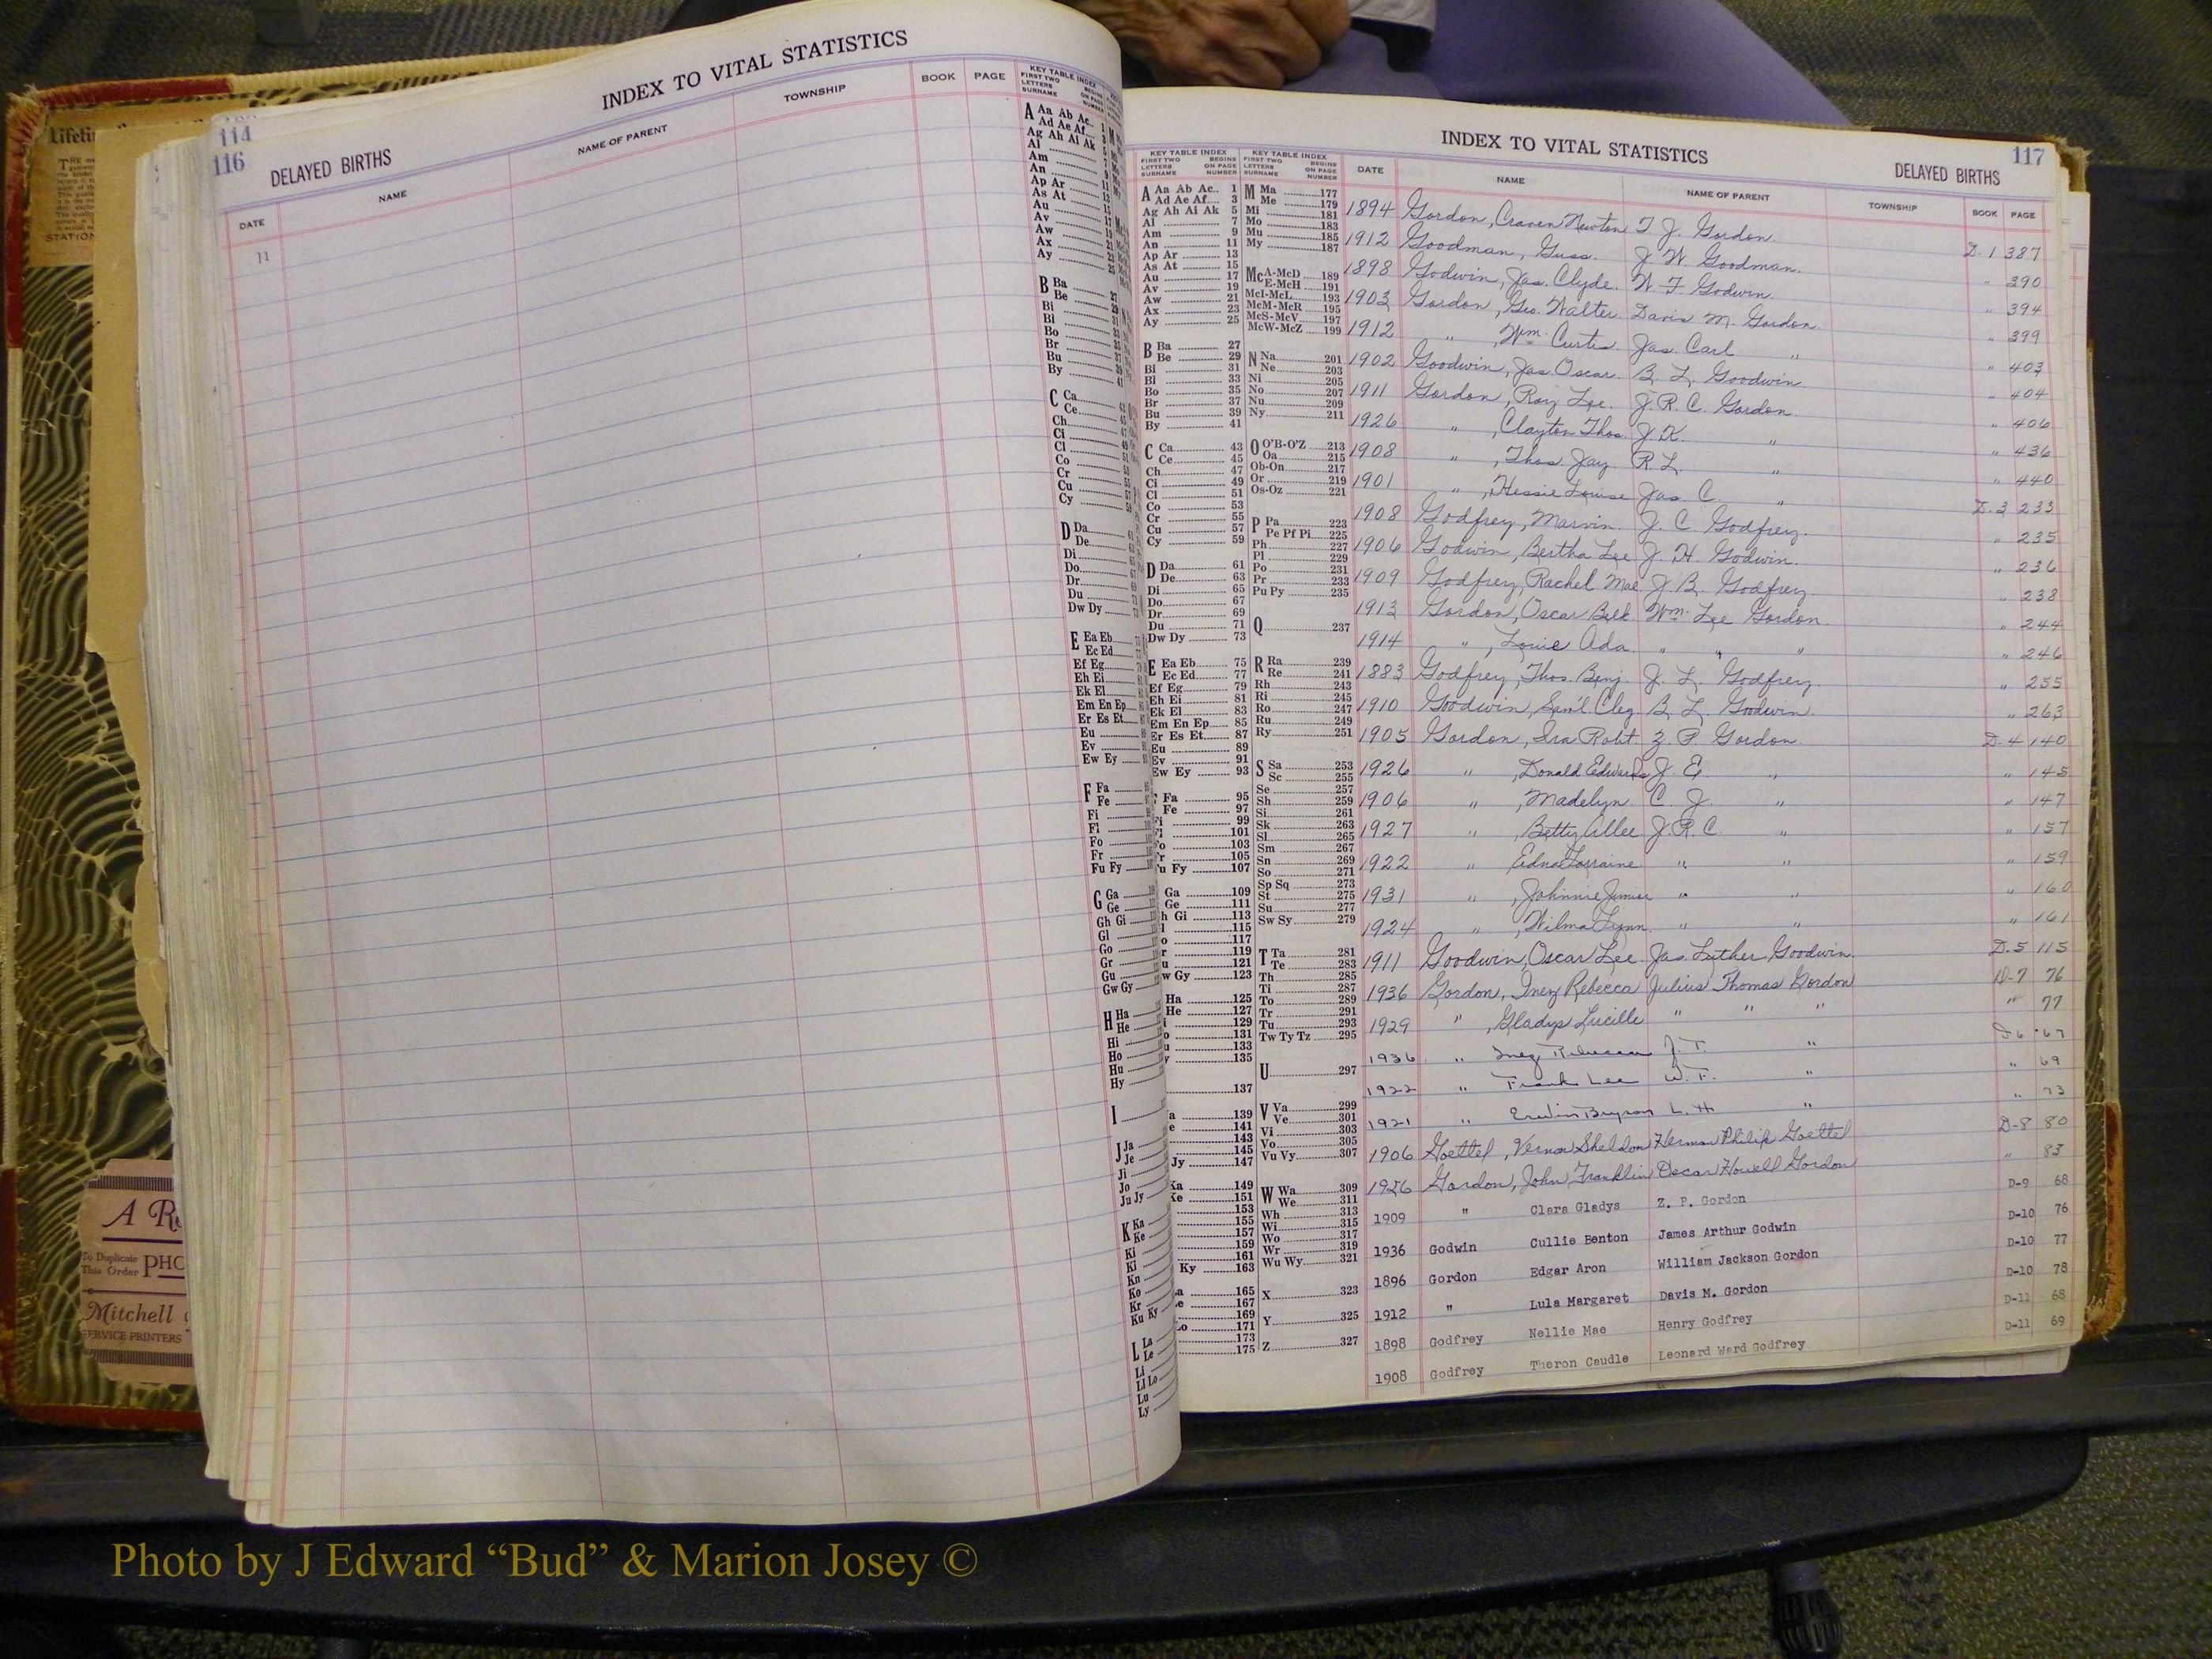 INDEX TO VITAL STATISTICS
114
116
DELAYED BIRTHS
DATE NAME NAME OF PARENT TOWNSHIP BOOK PAGE
11
KEY TABLE INDEX
FIRST TWO LETTERS SURNAME BEGINS ON PAGE NUMBER
A Aa Ab Ac
Ad Ae Af
Ag Ah Ai Ak
Al
Am
An
Ap Ar
As At
Au
Av
Aw
Ax
Ay
B Ba
Be
Bi
Bl
Bo
Br
Bu
By
C Ca
Ce
Ch
Ci
Cl
Co
Cr
Cu
Cy
D Da
De
Di
Do
Dr
Du
Dw Dy
E Ea Eb
Ec Ed
Ef Eg
Eh Ei
Ek El
Em En Ep
Er Es Et
Eu
Ev
Ew Ey
F Fa
Fe
Fi
Fl
Fo
Fr
Fu Fy
G Ga
Ge
Gh Gi
Gl
Go
Gr
Gu
Gw Gy
H Ha
He
Hi
Ho
Hu
Hy
I
J Ja
Je
Ji
Jo
Ju Jy
K Ka
Ke
Ki
Kl
Kn
Ko
Kr
Ku Ky
L La
Le
Li
Ll Lo
Lu
Ly
INDEX TO VITAL STATISTICS
117
DELAYED BIRTHS
KEY TABLE INDEX
FIRST TWO LETTERS SURNAME BEGINS ON PAGE NUMBER
A Aa Ab Ac.. 1
Ad Ae Af.... 3
Ag Ah Ai Ak 5
Al 7
Am 9
An 11
Ap Ar 13
As At 15
Au 17
Av 19
Aw 21
Ax 23
Ay 25
B Ba 27
Be 29
Bi 31
Bl 33
Bo 35
Br 37
Bu 39
By 41
C Ca 43
Ce 45
Ch 47
Ci 49
Cl 51
Co 53
Cr 55
Cu 57
Cy 59
D Da 61
De 63
Di 65
Do 67
Dr 69
Du 71
Dw Dy 73
E Ea Eb 75
Ec Ed 77
Ef Eg 79
Eh Ei 81
Ek El 83
Em En Ep 85
Er Es Et 87
Eu 89
Ev 91
Ew Ey 93
Fa 95
Fe 97
99
101
103
105
Fy 107
Ga 109
Ge 111
Gi 113
115
117
119
121
Gy 123
Ha 125
He 127
129
131
133
135
137
139
141
143
145
Jy 147
149
151
153
155
157
159
161
Ky 163
165
167
169
171
173
175
KEY TABLE INDEX
FIRST TWO LETTERS SURNAME BEGINS ON PAGE NUMBER
M Ma 177
Me 179
Mi 181
Mo 183
Mu 185
My 187
Mc A-McD 189
E-McH 191
McI-McL 193
McM-McR 195
McS-McV 197
McW-McZ 199
N Na 201
Ne 203
Ni 205
No 207
Nu 209
Ny 211
O O'B-O'Z 213
Oa 215
Ob-On 217
Or 219
Os-Oz 221
P Pa 223
Pe Pf Pi 225
Ph 227
Pl 229
Po 231
Pr 233
Pu Py 235
Q 237
R Ra 239
Re 241
Rh 243
Ri 245
Ro 247
Ru 249
Ry 251
S Sa 253
Sc 255
Se 257
Sh 259
Si 261
Sk 263
Sl 265
Sm 267
Sn 269
So 271
Sp Sq 273
St 275
Su 277
Sw Sy 279
T Ta 281
Te 283
Th 285
Ti 287
To 289
Tr 291
Tu 293
Tw Ty Tz 295
U 297
V Va 299
Ve 301
Vi 303
Vo 305
Vu Vy 307
W Wa 309
We 311
Wh 313
Wi 315
Wo 317
Wr 319
Wu Wy 321
X 323
Y 325
Z 327
DATE NAME NAME OF PARENT TOWNSHIP BOOK PAGE
1894 Gordon, Craven Newton T. J. Gordon D-1 387
1912 Goodman, Guss. J. W. Goodman. " 390
1898 Godwin, Jas. Clyde. W. F. Godwin. " 394
1903 Gordon, Geo. Walter Davis M. Gordon " 399
1912 " , Wm. Curtis Jas. Carl " " 403
1902 Goodwin, Jas. Oscar B. L. Goodwin " 404
1911 Gordon, Roy Lee. J. R. C. Gordon " 406
1926 " , Clayton Thos. J. K. " " 436
1908 " , Thos. Jay R. L. " " 440
1901 " , Hessie Louise Jas. C. " D-3 233
1908 Godfrey, Marvin J. C. Godfrey. " 235
1906 Godwin, Bertha Lee J. H. Godwin. " 236
1909 Godfrey, Rachel Mae J. B. Godfrey " 238
1913 Gordon, Oscar Belk Wm. Lee Gordon " 244
1914 " , Louie Ada " " " " 246
1883 Godfrey, Thos. Benj. J. L. Godfrey " 255
1910 Goodwin, Sam'l Cleg. B. L. Goodwin " 263
1905 Gordon, Ira Robt. Z. P. Gordon D-4 140
1926 " , Donald Edwards J. E. " " 145
1906 " , Madelyn C. J. " " 147
1927 " , Betty Allee J. R. C. " " 157
1922 " Edna Lorraine " " " 159
1931 " , Johnnie Junior " " " 160
1924 " , Wilma Lynn " " " 161
1911 Goodwin, Oscar Lee Jas. Luther Goodwin D-5 115
1936 Gordon, Inez Rebecca Julius Thomas Gordon D-7 76
1929 " , Gladys Lucille " " " " 77
1936 " Inez Rebecca J. T. " D6 67
1922 " Frank Lee W. F. " " 69
1921 " Erwin Bryson L. H. " " 73
1906 Goettel, Vernon Sheldon Herman Philip Goettel D-8 80
1926 Gordon, John Franklin Oscar Howell Gordon " 83
1909 " Clara Gladys Z. P. Gordon D-9 68
1936 Godwin Cullie Benton James Arthur Godwin D-10 76
1896 Gordon Edgar Aron William Jackson Gordon D-10 77
1912 " Lula Margaret Davis M. Gordon D-10 78
1898 Godfrey Nellie Mae Henry Godfrey D-11 68
1908 Godfrey Theron Caudle Leonard Ward Godfrey D-11 69
To Duplicate This Order PHO
Mitchell
SERVICE PRINTERS
Photo by J Edward “Bud” & Marion Josey ©